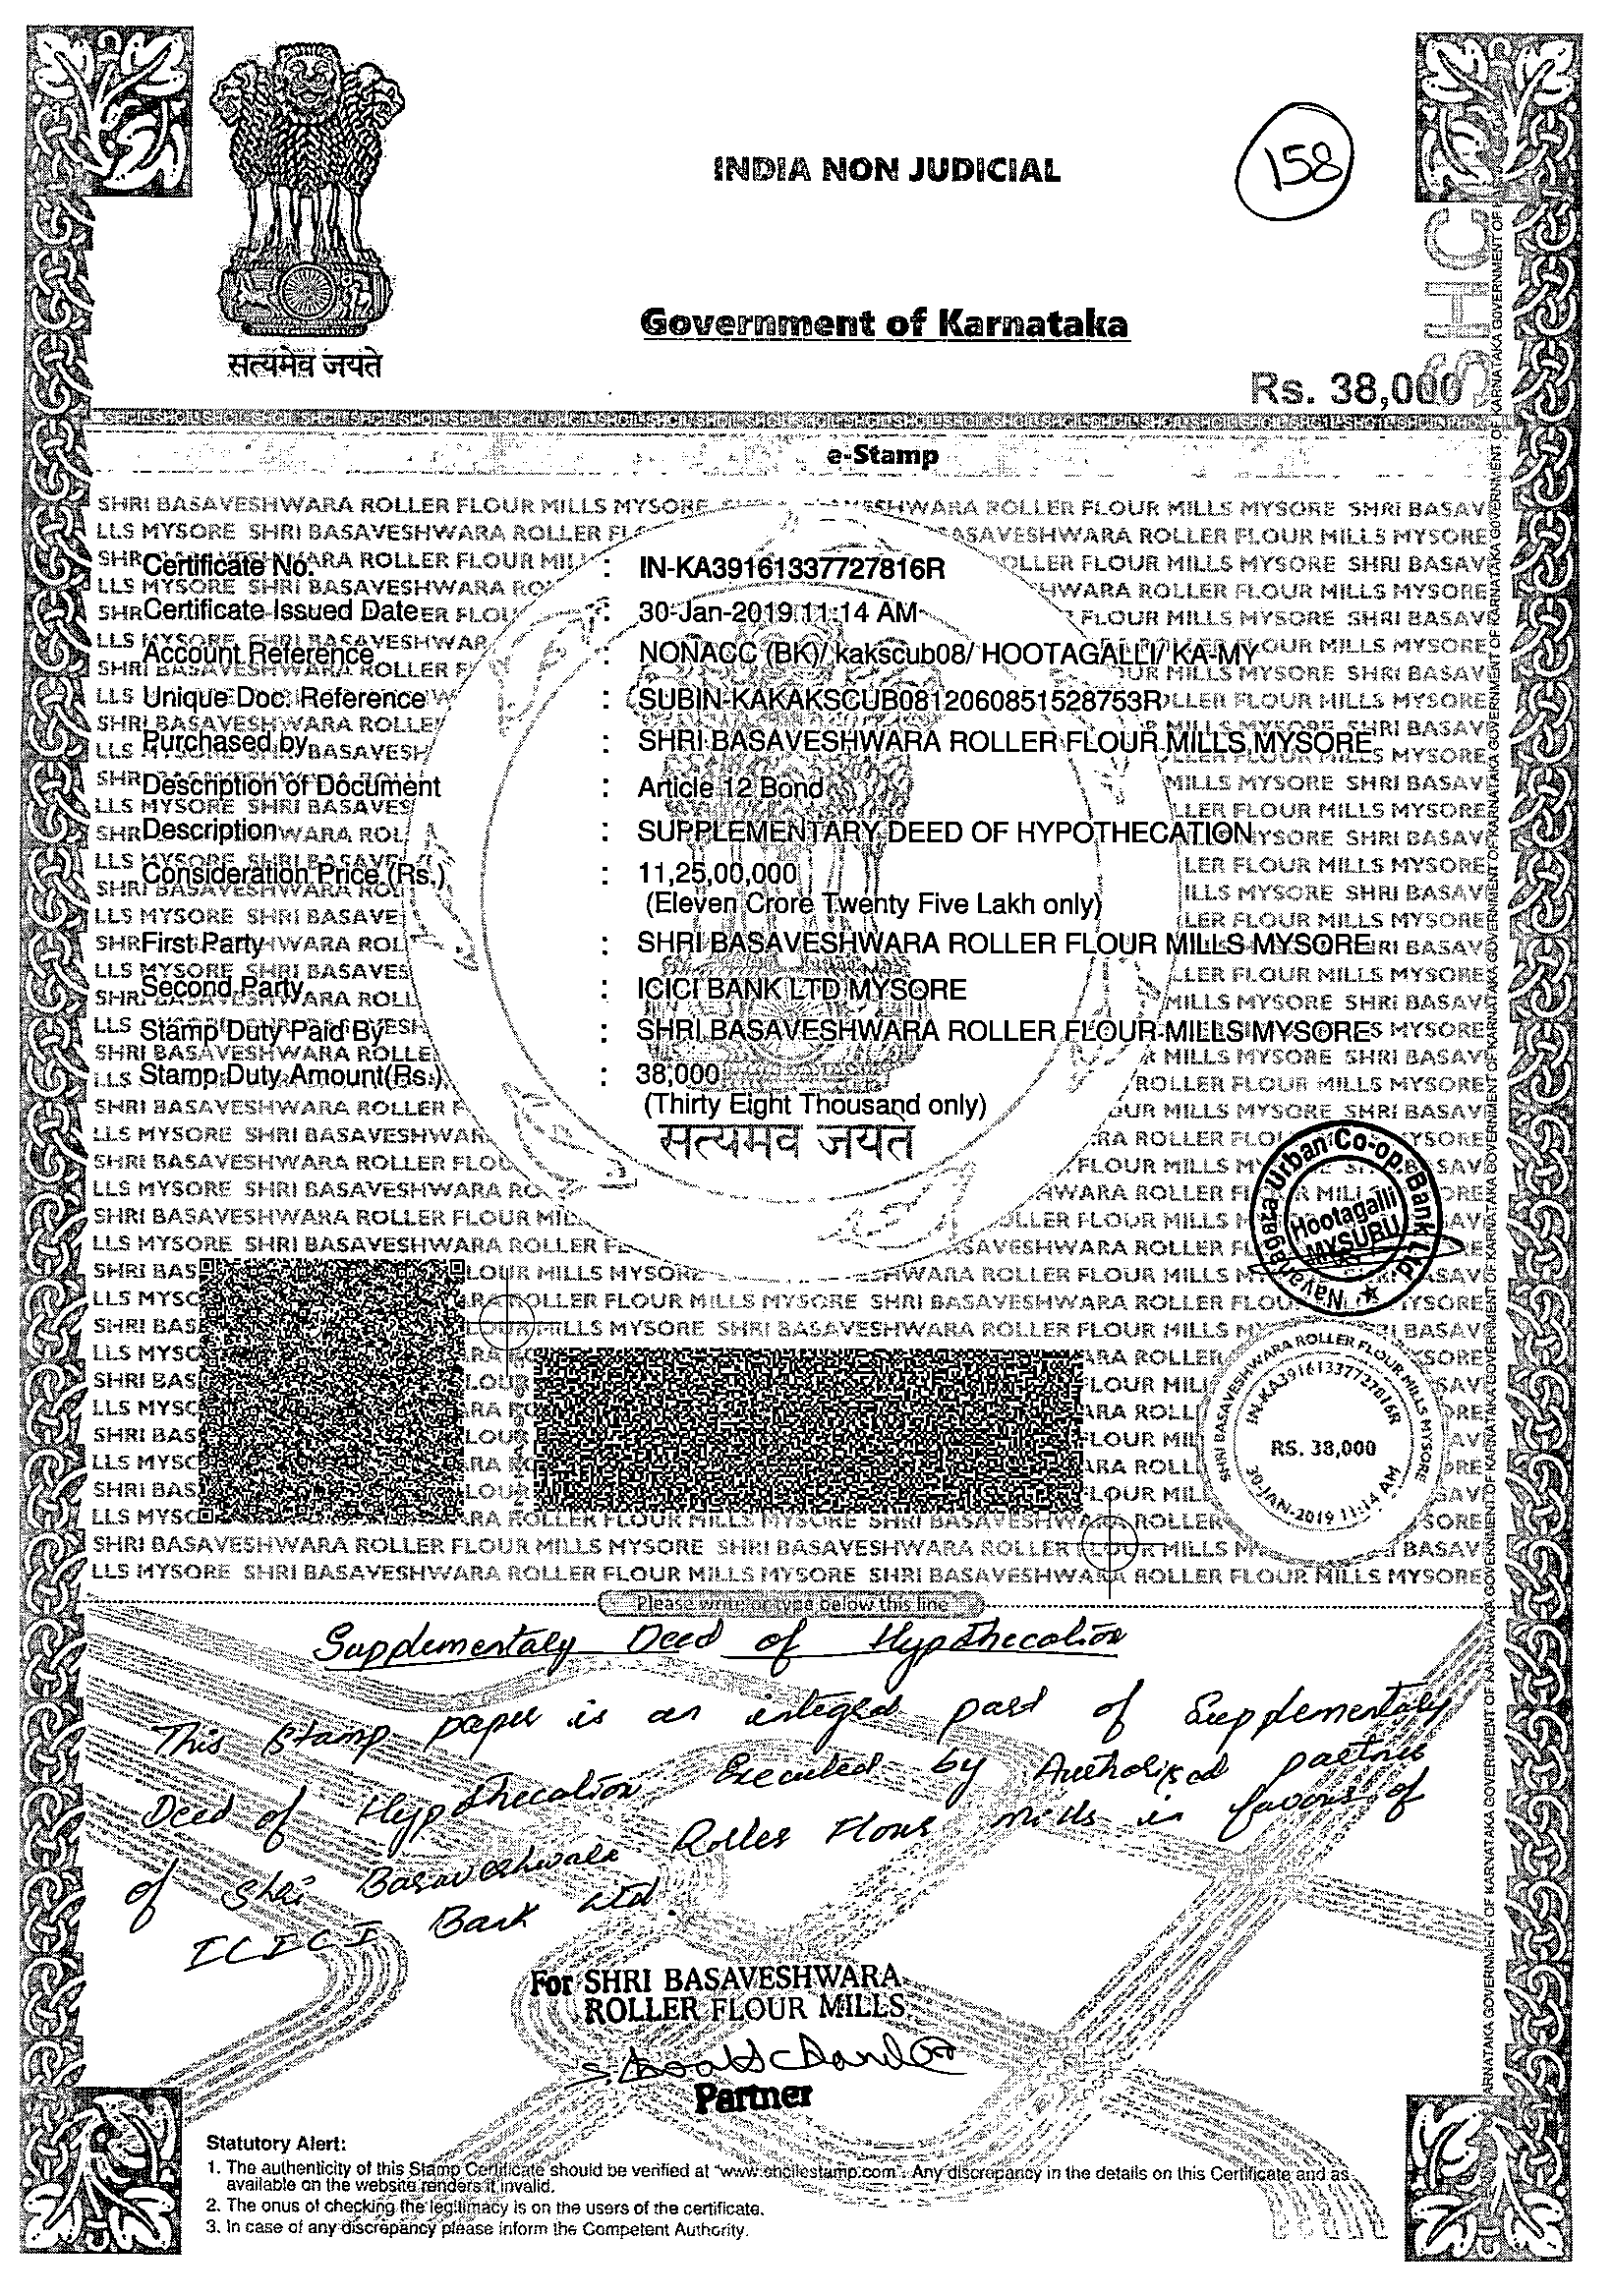 INDIA NON JUDICIAL
158
Government of Karnataka
सत्यमेव जयते
Rs. 38,000
e-Stamp
Certificate No. : IN-KA39161337727816R
Certificate Issued Date : 30-Jan-2019 11:14 AM
Account Reference : NONACC (BK)/ kakscub08/ HOOTAGALLI/ KA-MY
Unique Doc. Reference : SUBIN-KAKAKSCUB0812060851528753R
Purchased by : SHRI BASAVESHWARA ROLLER FLOUR MILLS MYSORE
Description of Document : Article 12 Bond
Description : SUPPLEMENTARY DEED OF HYPOTHECATION
Consideration Price (Rs.) : 11,25,00,000
(Eleven Crore Twenty Five Lakh only)
First Party : SHRI BASAVESHWARA ROLLER FLOUR MILLS MYSORE
Second Party : ICICI BANK LTD MYSORE
Stamp Duty Paid By : SHRI BASAVESHWARA ROLLER FLOUR MILLS MYSORE
Stamp Duty Amount(Rs.) : 38,000
(Thirty Eight Thousand only)
सत्यमेव जयते
Navanagara Urban Co-op. Bank Ltd
Hootagalli
MYSURU
SHRI BASAVESHWARA ROLLER FLOUR MILLS MYSORE
IN-KA39161337727816R
RS. 38,000
30-JAN-2019 11:14 AM
Please write or type below this line
Supplementary Deed of Hypothecation
This stamp paper is an integral part of Supplementary
Deed of Hypothecation Executed by Authorised partner
of Shri Basaveshwara Roller Flour Mills in favour of
ICICI Bank Ltd.
For SHRI BASAVESHWARA
ROLLER FLOUR MILLS
Partner
Statutory Alert:
1. The authenticity of this Stamp Certificate should be verified at "www.shcilestamp.com". Any discrepancy in the details on this Certificate and as
available on the website renders it invalid.
2. The onus of checking the legitimacy is on the users of the certificate.
3. In case of any discrepancy please inform the Competent Authority.